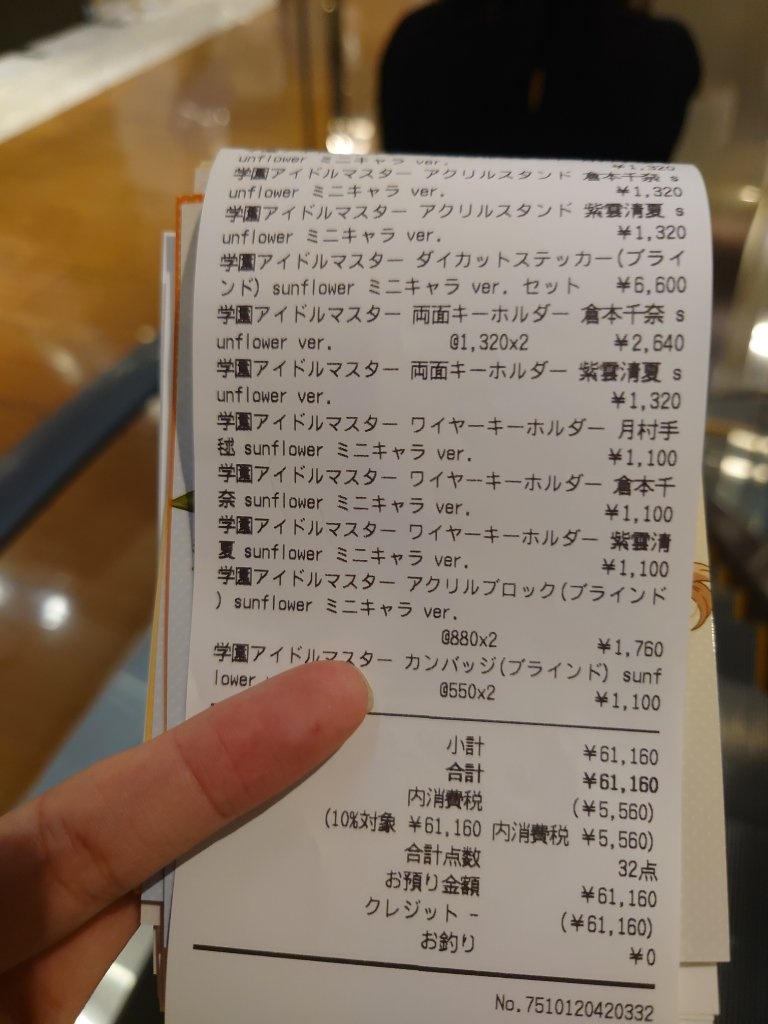 unflower ミニキャラ ver. ¥1,320
学園アイドルマスター アクリルスタンド 倉本千奈 s
unflower ミニキャラ ver. ¥1,320
学園アイドルマスター アクリルスタンド 紫雲清夏 s
unflower ミニキャラ ver. ¥1,320
学園アイドルマスター ダイカットステッカー(ブライ
ンド) sunflower ミニキャラ ver. セット ¥6,600
学園アイドルマスター 両面キーホルダー 倉本千奈 s
unflower ver. @1,320x2 ¥2,640
学園アイドルマスター 両面キーホルダー 紫雲清夏 s
unflower ver. ¥1,320
学園アイドルマスター ワイヤーキーホルダー 月村手
毬 sunflower ミニキャラ ver. ¥1,100
学園アイドルマスター ワイヤーキーホルダー 倉本千
奈 sunflower ミニキャラ ver. ¥1,100
学園アイドルマスター ワイヤーキーホルダー 紫雲清
夏 sunflower ミニキャラ ver. ¥1,100
学園アイドルマスター アクリルブロック(ブラインド
) sunflower ミニキャラ ver.
@880x2 ¥1,760
学園アイドルマスター カンバッジ(ブラインド) sunf
lower @550x2 ¥1,100
小計 ¥61,160
合計 ¥61,160
内消費税 (¥5,560)
(10%対象 ¥61,160 内消費税 ¥5,560)
合計点数 32点
お預り金額 ¥61,160
クレジット - (¥61,160)
お釣り ¥0
No.7510120420332